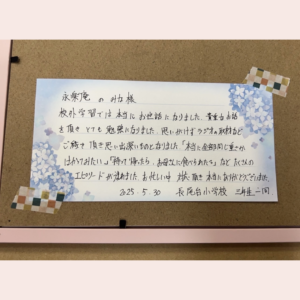 永楽庵 の みな様
校外学習では 本当に お世話に なりました。貴重な お話
を 頂き とても 勉強に なりました。思いがけず ラジオの取材など
ご縁を 頂き 思い出深いものと なりました。「本当に
はかってみたい」「持って帰ったら、お母さんに 食べられちゃう」など たくさんの
エピソードが 生まれました。お忙しい中 頂き 本当に ありがとうございました。
2025. 5. 30 長尾台小学校 三年生一同